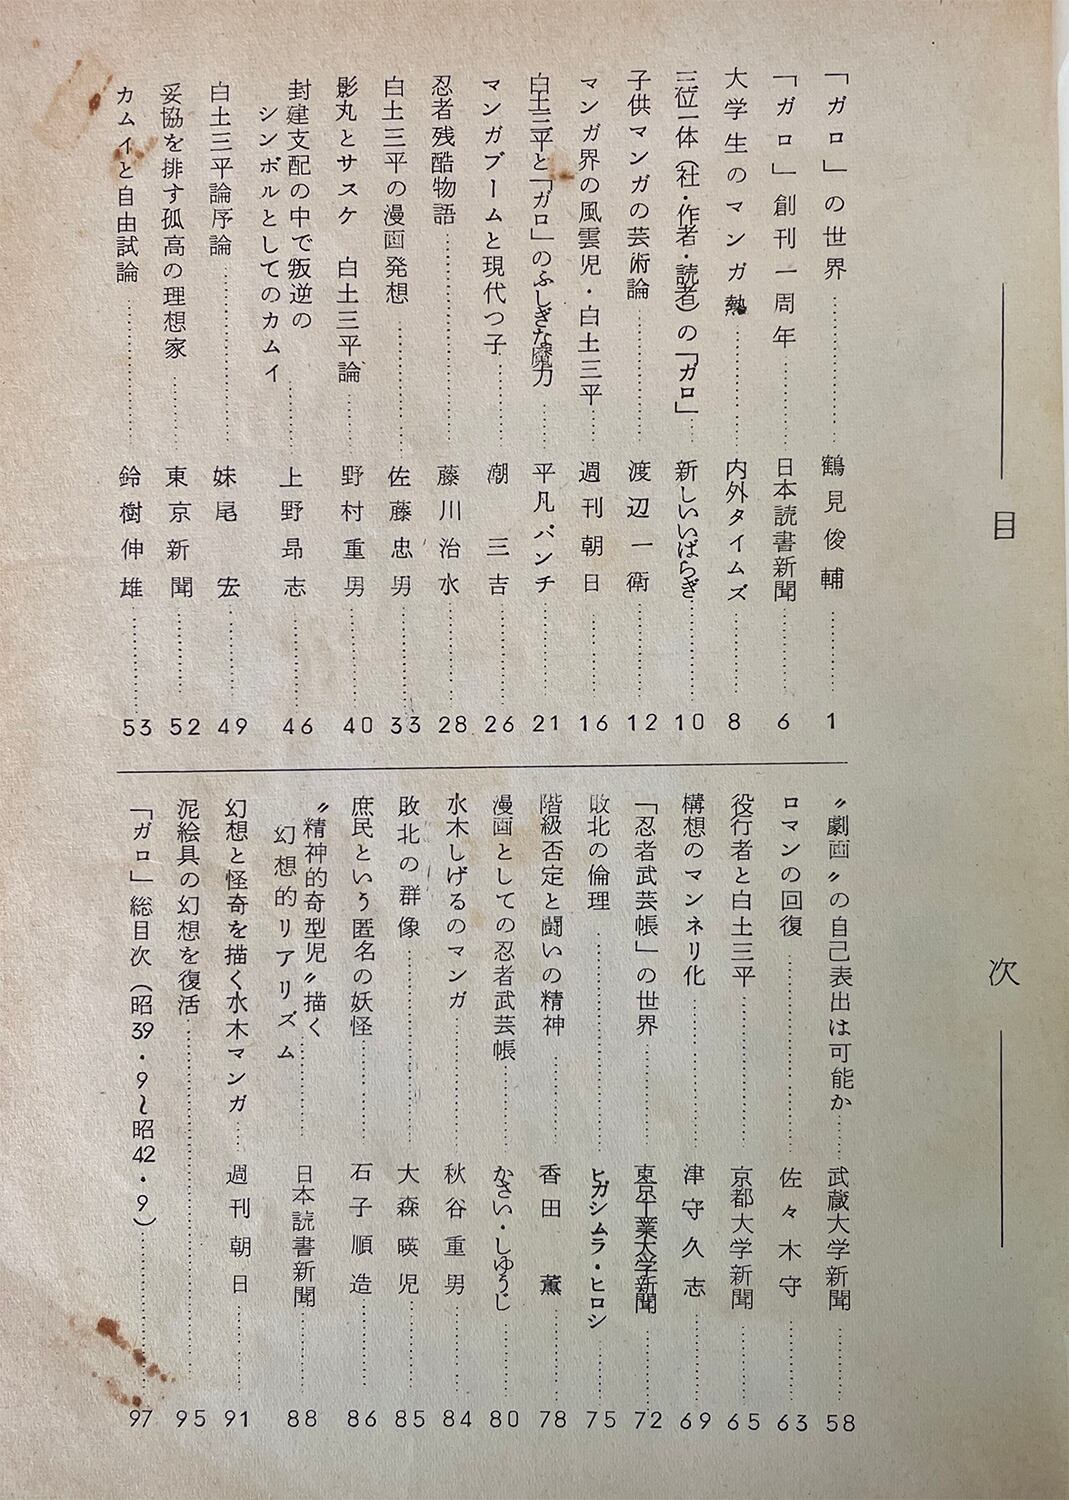 目次
「ガロ」の世界……鶴見俊輔……1
「ガロ」創刊一周年……日本読書新聞……6
大学生のマンガ熱……内外タイムズ……8
三位一体（社・作者・読者）の「ガロ」……新しいいばらぎ……10
子供マンガの芸術論……渡辺一衛……12
マンガ界の風雲児・白土三平……週刊朝日……16
白土三平と「ガロ」のふしぎな魔力……平凡パンチ……21
マンガブームと現代っ子……潮三吉……26
忍者残酷物語……藤川治水……28
白土三平の漫画発想……佐藤忠男……33
影丸とサスケ 白土三平論……野村重男……40
封建支配の中で叛逆の
シンボルとしてのカムイ……上野昂志……46
白土三平論序論……妹尾宏……49
妥協を排す孤高の理想家……東京新聞……52
カムイと自由試論……鈴樹伸雄……53
〝劇画〟の自己表出は可能か……武蔵大学新聞……58
ロマンの回復……佐々木守……63
役行者と白土三平……京都大学新聞……65
構想のマンネリ化……津守久志……69
「忍者武芸帳」の世界……東京工業大学新聞……72
敗北の倫理……ヒガシムラ・ヒロシ……75
階級否定と闘いの精神……香田薫……78
漫画としての忍者武芸帳……かさい・しゆうじ……80
水木しげるのマンガ……秋谷重男……84
敗北の群像……大森暎児……85
庶民という匿名の妖怪……石子順造……86
〝精神的奇型児〟描く
幻想的リアリズム……日本読書新聞……88
幻想と怪奇を描く水木マンガ……週刊朝日……91
泥絵具の幻想を復活……95
「ガロ」総目次（昭39・9～昭42・9）……97